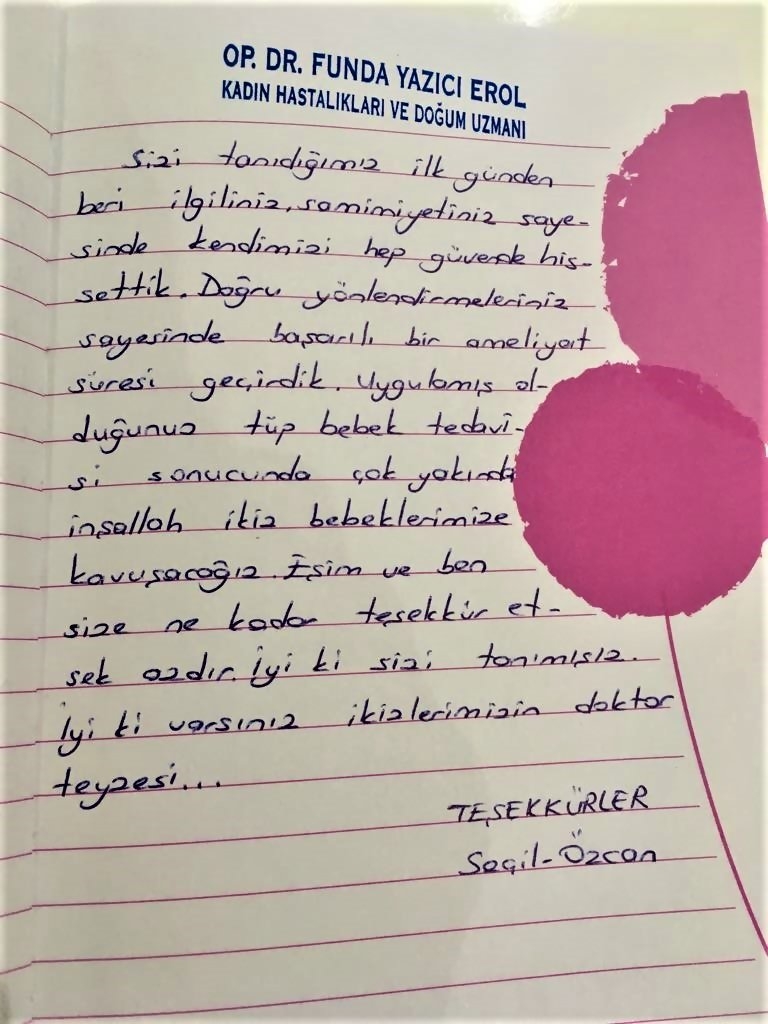 OP. DR. FUNDA YAZICI EROL
KADIN HASTALIKLARI VE DOĞUM UZMANI
Sizi tanıdığımız ilk günden
beri ilgiliniz, samimiyetiniz saye-
sinde kendimizi hep güvende his-
settik. Doğru yönlendirmeleriniz
sayesinde başarılı bir ameliyat
süresi geçirdik. Uygulamış ol-
duğunuz tüp bebek tedavi-
si sonucunda çok yakında
inşallah ikiz bebeklerimize
kavuşacağız. Eşim ve ben
size ne kadar teşekkür et-
sek azdır. İyi ki sizi tanımışız.
İyi ki varsınız ikizlerimizin doktor
teyzesi...
TEŞEKKÜRLER
Seçil-Özcan